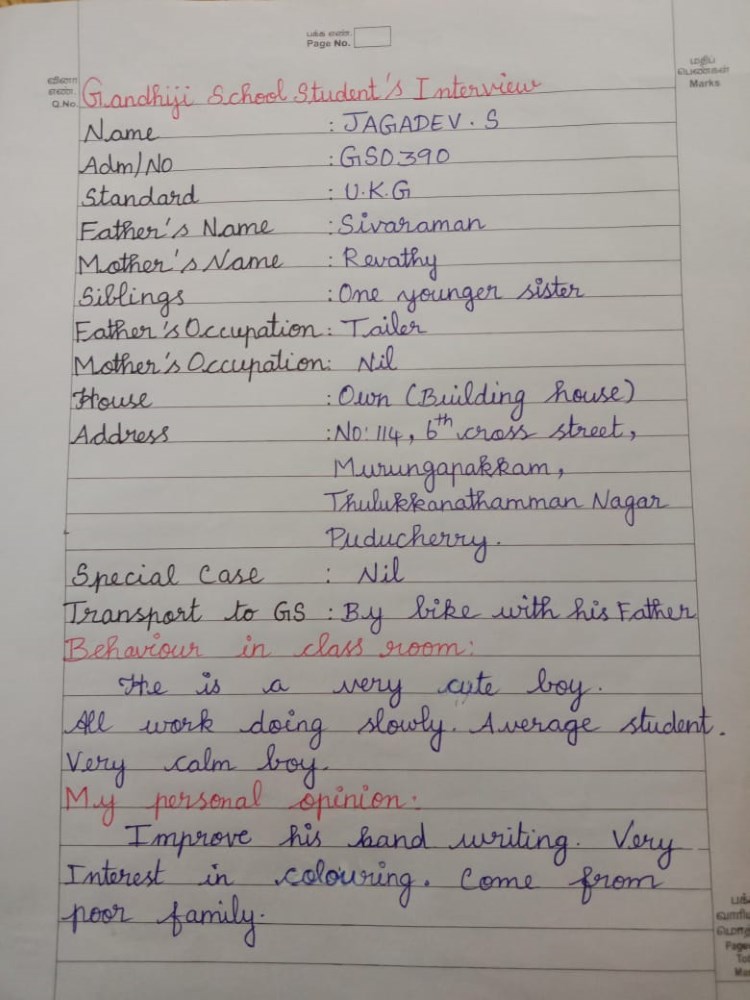 பக்க எண்.
Page No.
வினா
எண்.
Q.No.
மதிப்
பெண்கள்
Marks
Gandhiji School Student's Interview
Name : JAGADEV. S
Adm/No : GS0390
Standard : U.K.G
Father's Name : Sivaraman
Mother's Name : Revathy
Siblings : One younger sister
Father's Occupation: Tailer
Mother's Occupation: Nil
House : Own (Building house)
Address : NO: 114, 6th cross street,
Murungapakkam,
Thulukkanathamman Nagar
Puducherry.
Special Case : Nil
Transport to GS : By bike with his Father
Behaviour in class room:
He is a very cute boy.
All work doing slowly. Average student.
Very calm boy.
My personal opinion:
Improve his hand writing. Very
Interest in colouring. Come from
poor family.
Page
Tot
Ma